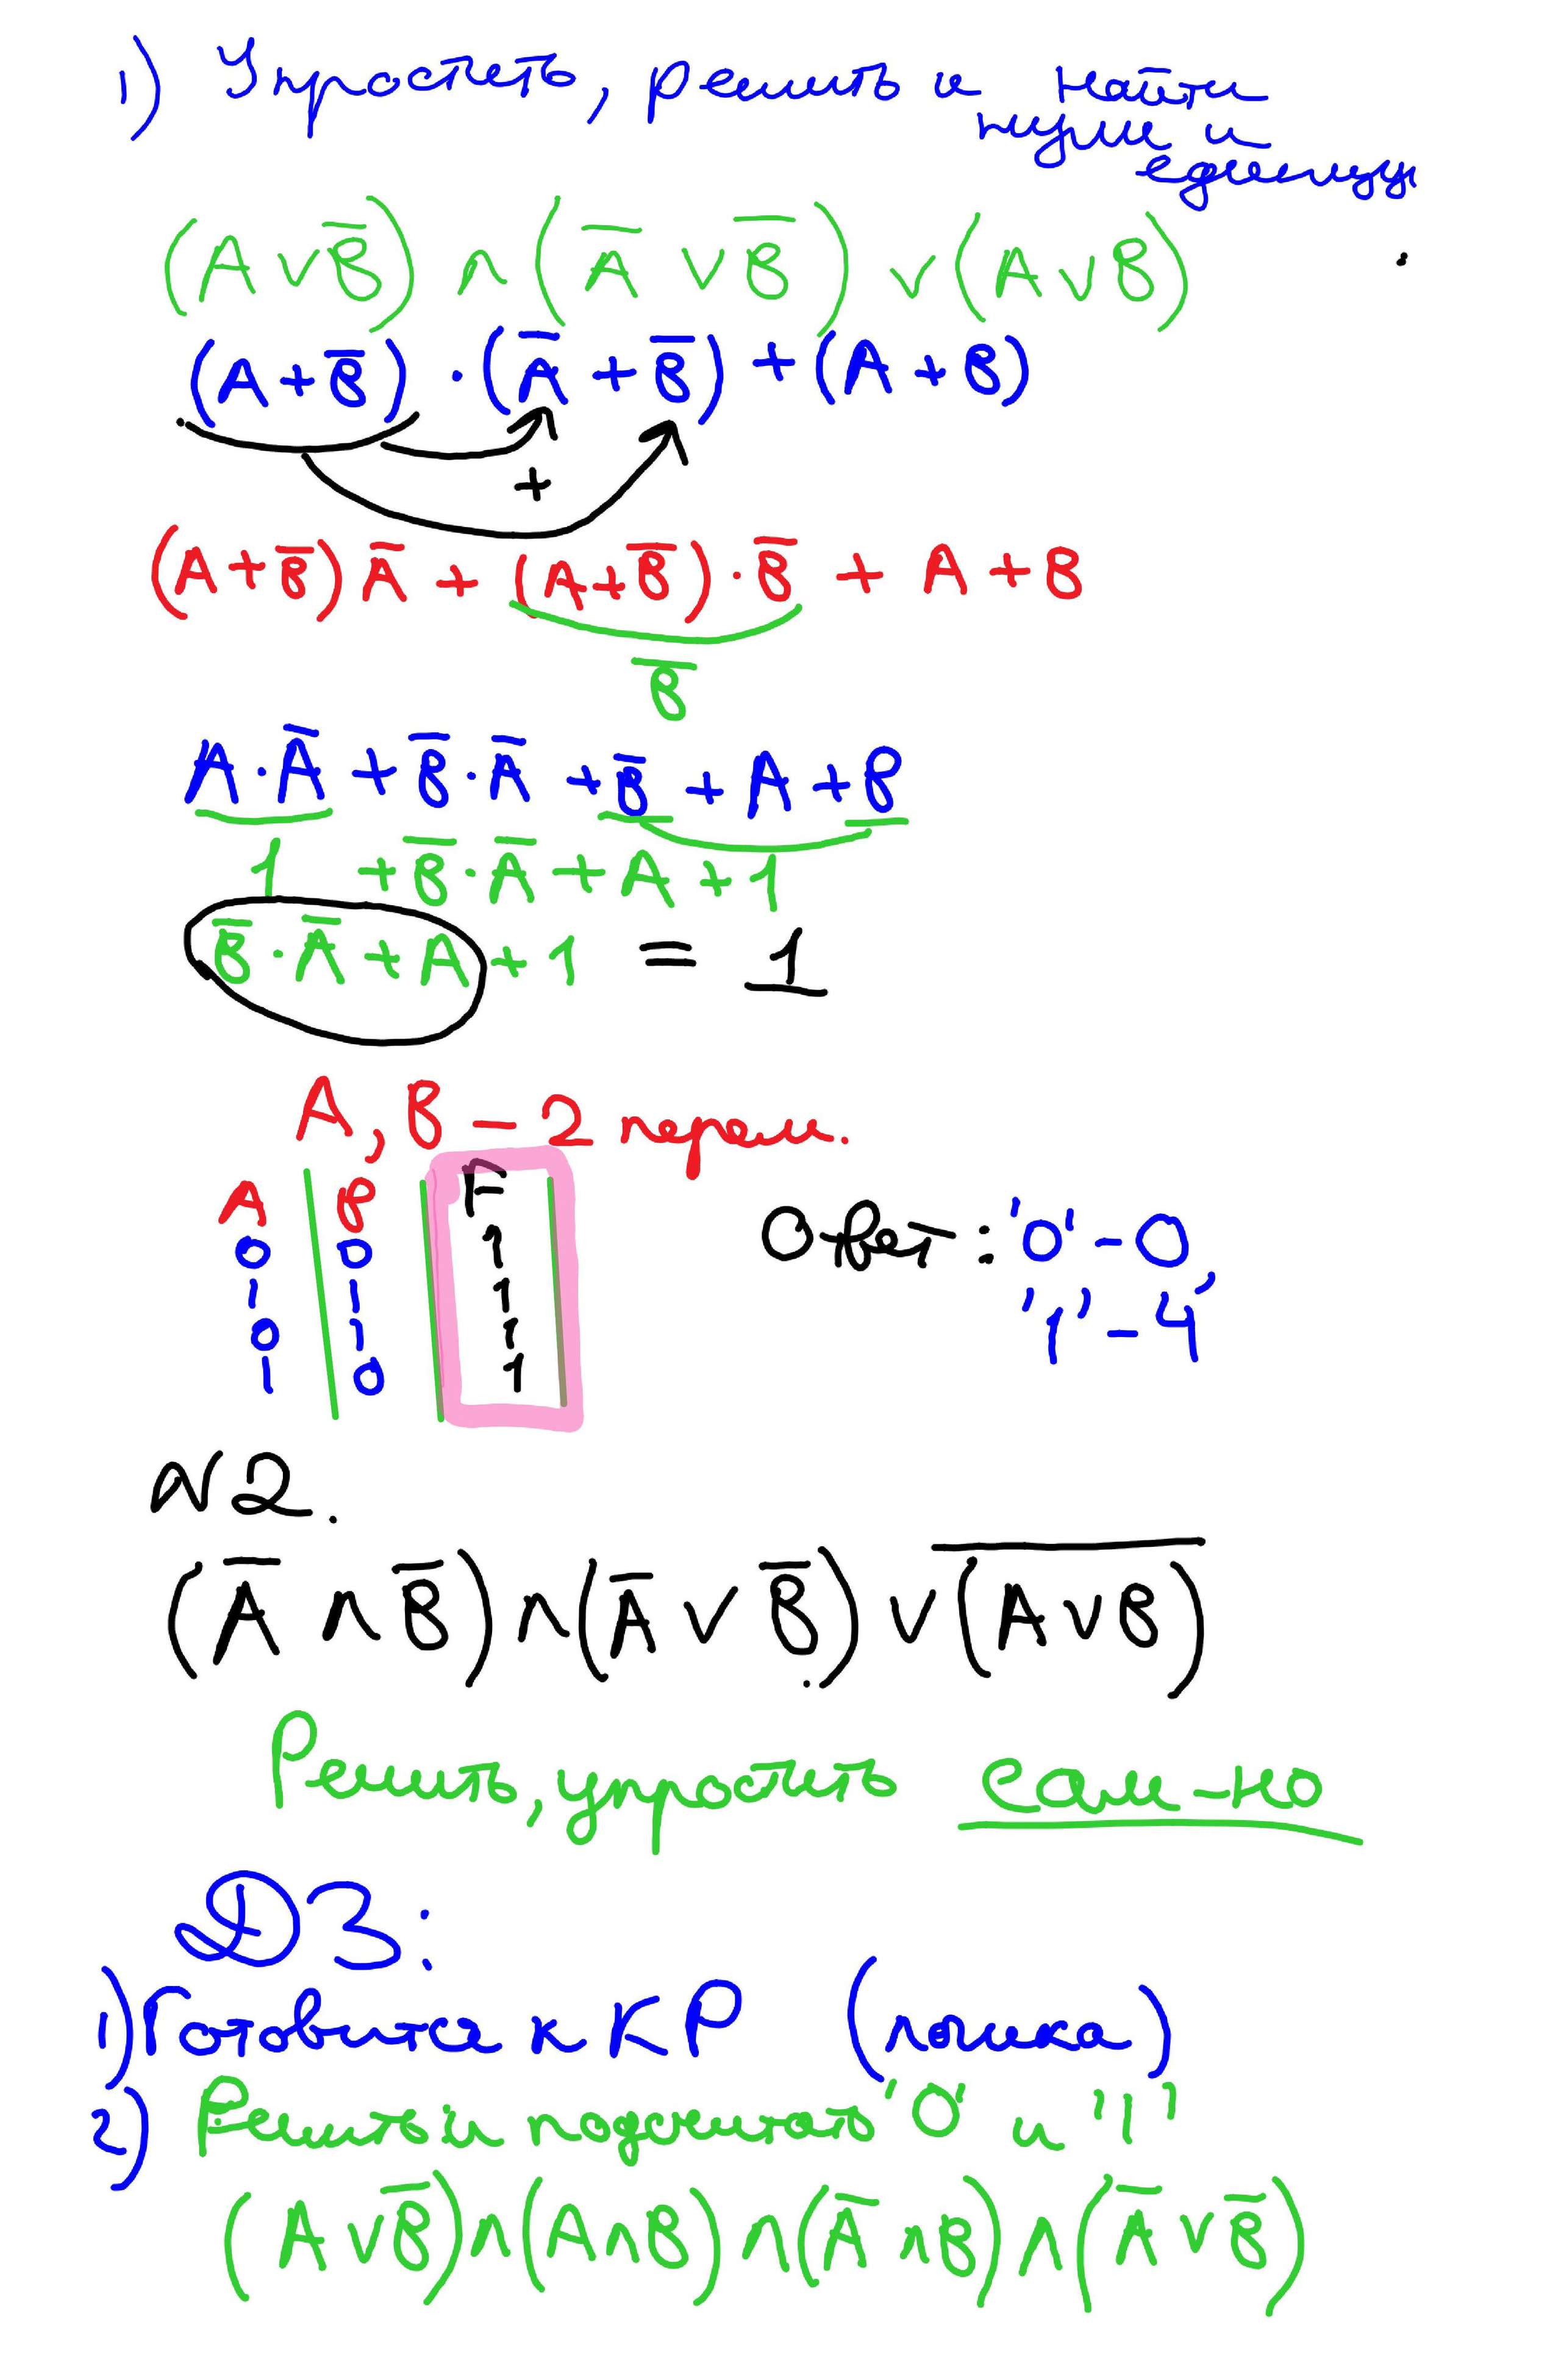 1) Упростить, решить и найти
нули и
единицы
(A ∨ B̅) ∧ (A̅ ∨ B̅) ∨ (A ∨ B)
(A + B̅) · (A̅ + B̅) + (A + B)
+
(A + B̅) A̅ + (A + B̅) · B̅ + A + B
B̅
A · A̅ + B̅ · A̅ + B̅ + A + B
1 + B̅ · A̅ + A + 1
B̅ · A̅ + A + 1 = 1
A, B – 2 перем.
A B F
0 0 1
1 1 1
0 1 1
1 0 1
Ответ: '0' – 0,
'1' – 4
N2.
(A̅ ∧ B̅) ∧ (A̅ ∨ B̅) ∨ (A̅ ̅∨̅ ̅B̅)
Решить, упростить Сам-но
ДЗ:
1) Готовится к КР (логика)
2) Решить и подсчитать '0' и "1"
(A ∨ B̅) ∧ (A ∧ B) ∧ (A̅ ∧ B) ∧ (A̅ ∨ B̅)